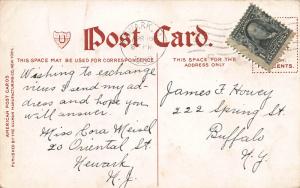 Post Card.
THIS SPACE MAY BE USED FOR CORRESPONDENCE.
THIS SPACE FOR THE
ADDRESS ONLY
Wishing to exchange
views I send my ad-
dress and hope you
will answer.
Miss Cora Meisel
20 Oriental St.
Newark
N.J.
James F. Howey
222 Spring St.
Buffalo
N.Y.
AMERICAN POST CARDS.